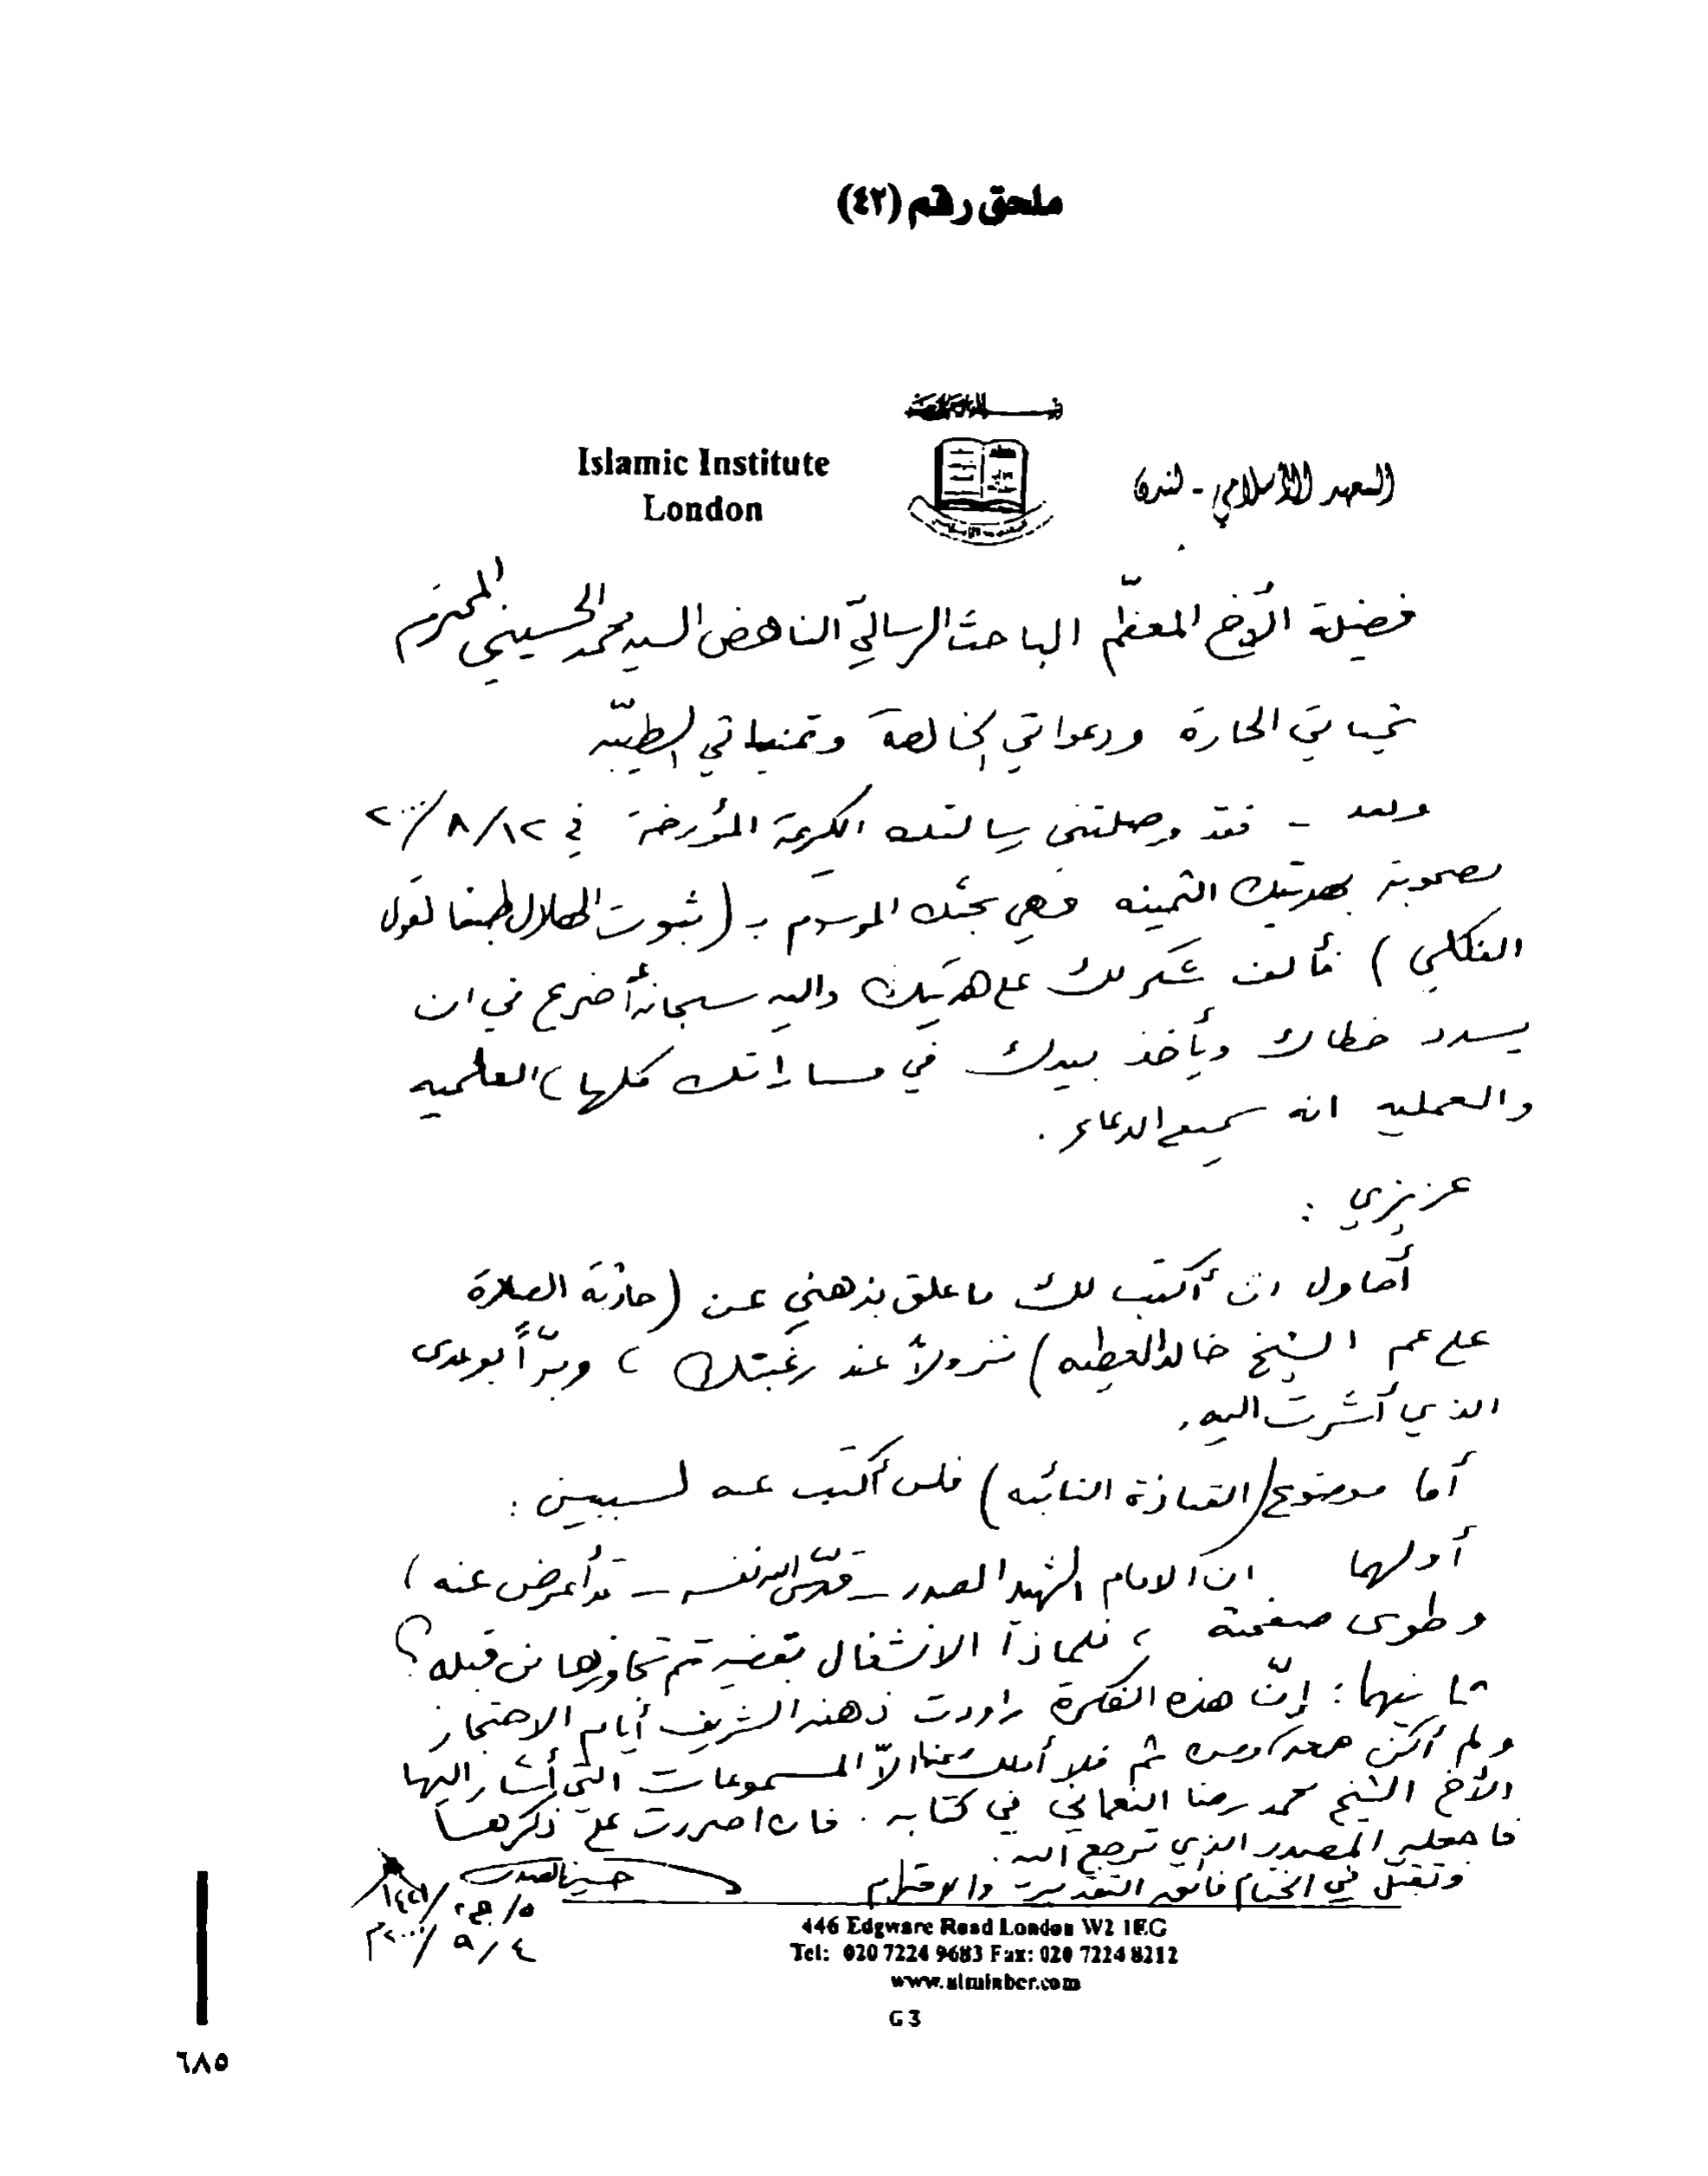 ملحق رقم (٤٢)
Islamic Institute
London
المعهد الإسلامي - لندن
فضيلة الأخ المعظّم الباحث الرساليّ الناهض السيد محمد الحسيني المحترم
تحياتي الحارة ودعواتي الخالصة وتمنياتي الطيّبه
وبعد - فقد وصلتني رسالتك الكريمة المؤرخة في ١٢/٨/٢٠٠٠
مصحوبة بهديتك الثمينه وهي بحثك الموسوم بـ (ثبوت الهلال طبقا لقول
الفلكي) فألف شكر لك على هديتك والله سبحانه أضرع في ان
يسدد خطاك ويأخذ بيدك في مساراتك كلها، العلميه
والعمليه انه سميع الدعاء.
عزيزي :
أحاول ان أكتب لك ما علق بذهني عن (حادثة الصلاة
على عم الشيخ خالد العطيه) نزولاً عند رغبتك، وبرّاً بوعدي
الذي أشرت اليه.
أما موضوع (القيادة النائبه) فلن أكتب عنه لسببين :
أولهما ان الامام الشهيد الصدر - قدّس الله نفسه - قد أعرض عنه،
وطوى صفحته، فلماذا الانشغال بقضية تم تجاوزها من قبله؟
ثانيهما : إنّ هذه الفكرة راودت ذهنه الشريف أيام الاحتجاز
ولم أكن معه ثم فلا أملك عنها الاّ المسموعات التي أشار اليها
الأخ الشيخ محمد رضا النعماني في كتابه. فان اصررت على ذكرها
فاجعله المصدر الذي ترجع اليه.
وتقبل في الختام فائق التقدير والاحترام
حسين الصدر
٥/ج٢/١٤٢١
٤/٩/٢٠٠٠م
446 Edgware Road London W2 1EG
Tel: 020 7224 9683 Fax: 020 7224 8212
www.alminber.com
G3
٦٨٥